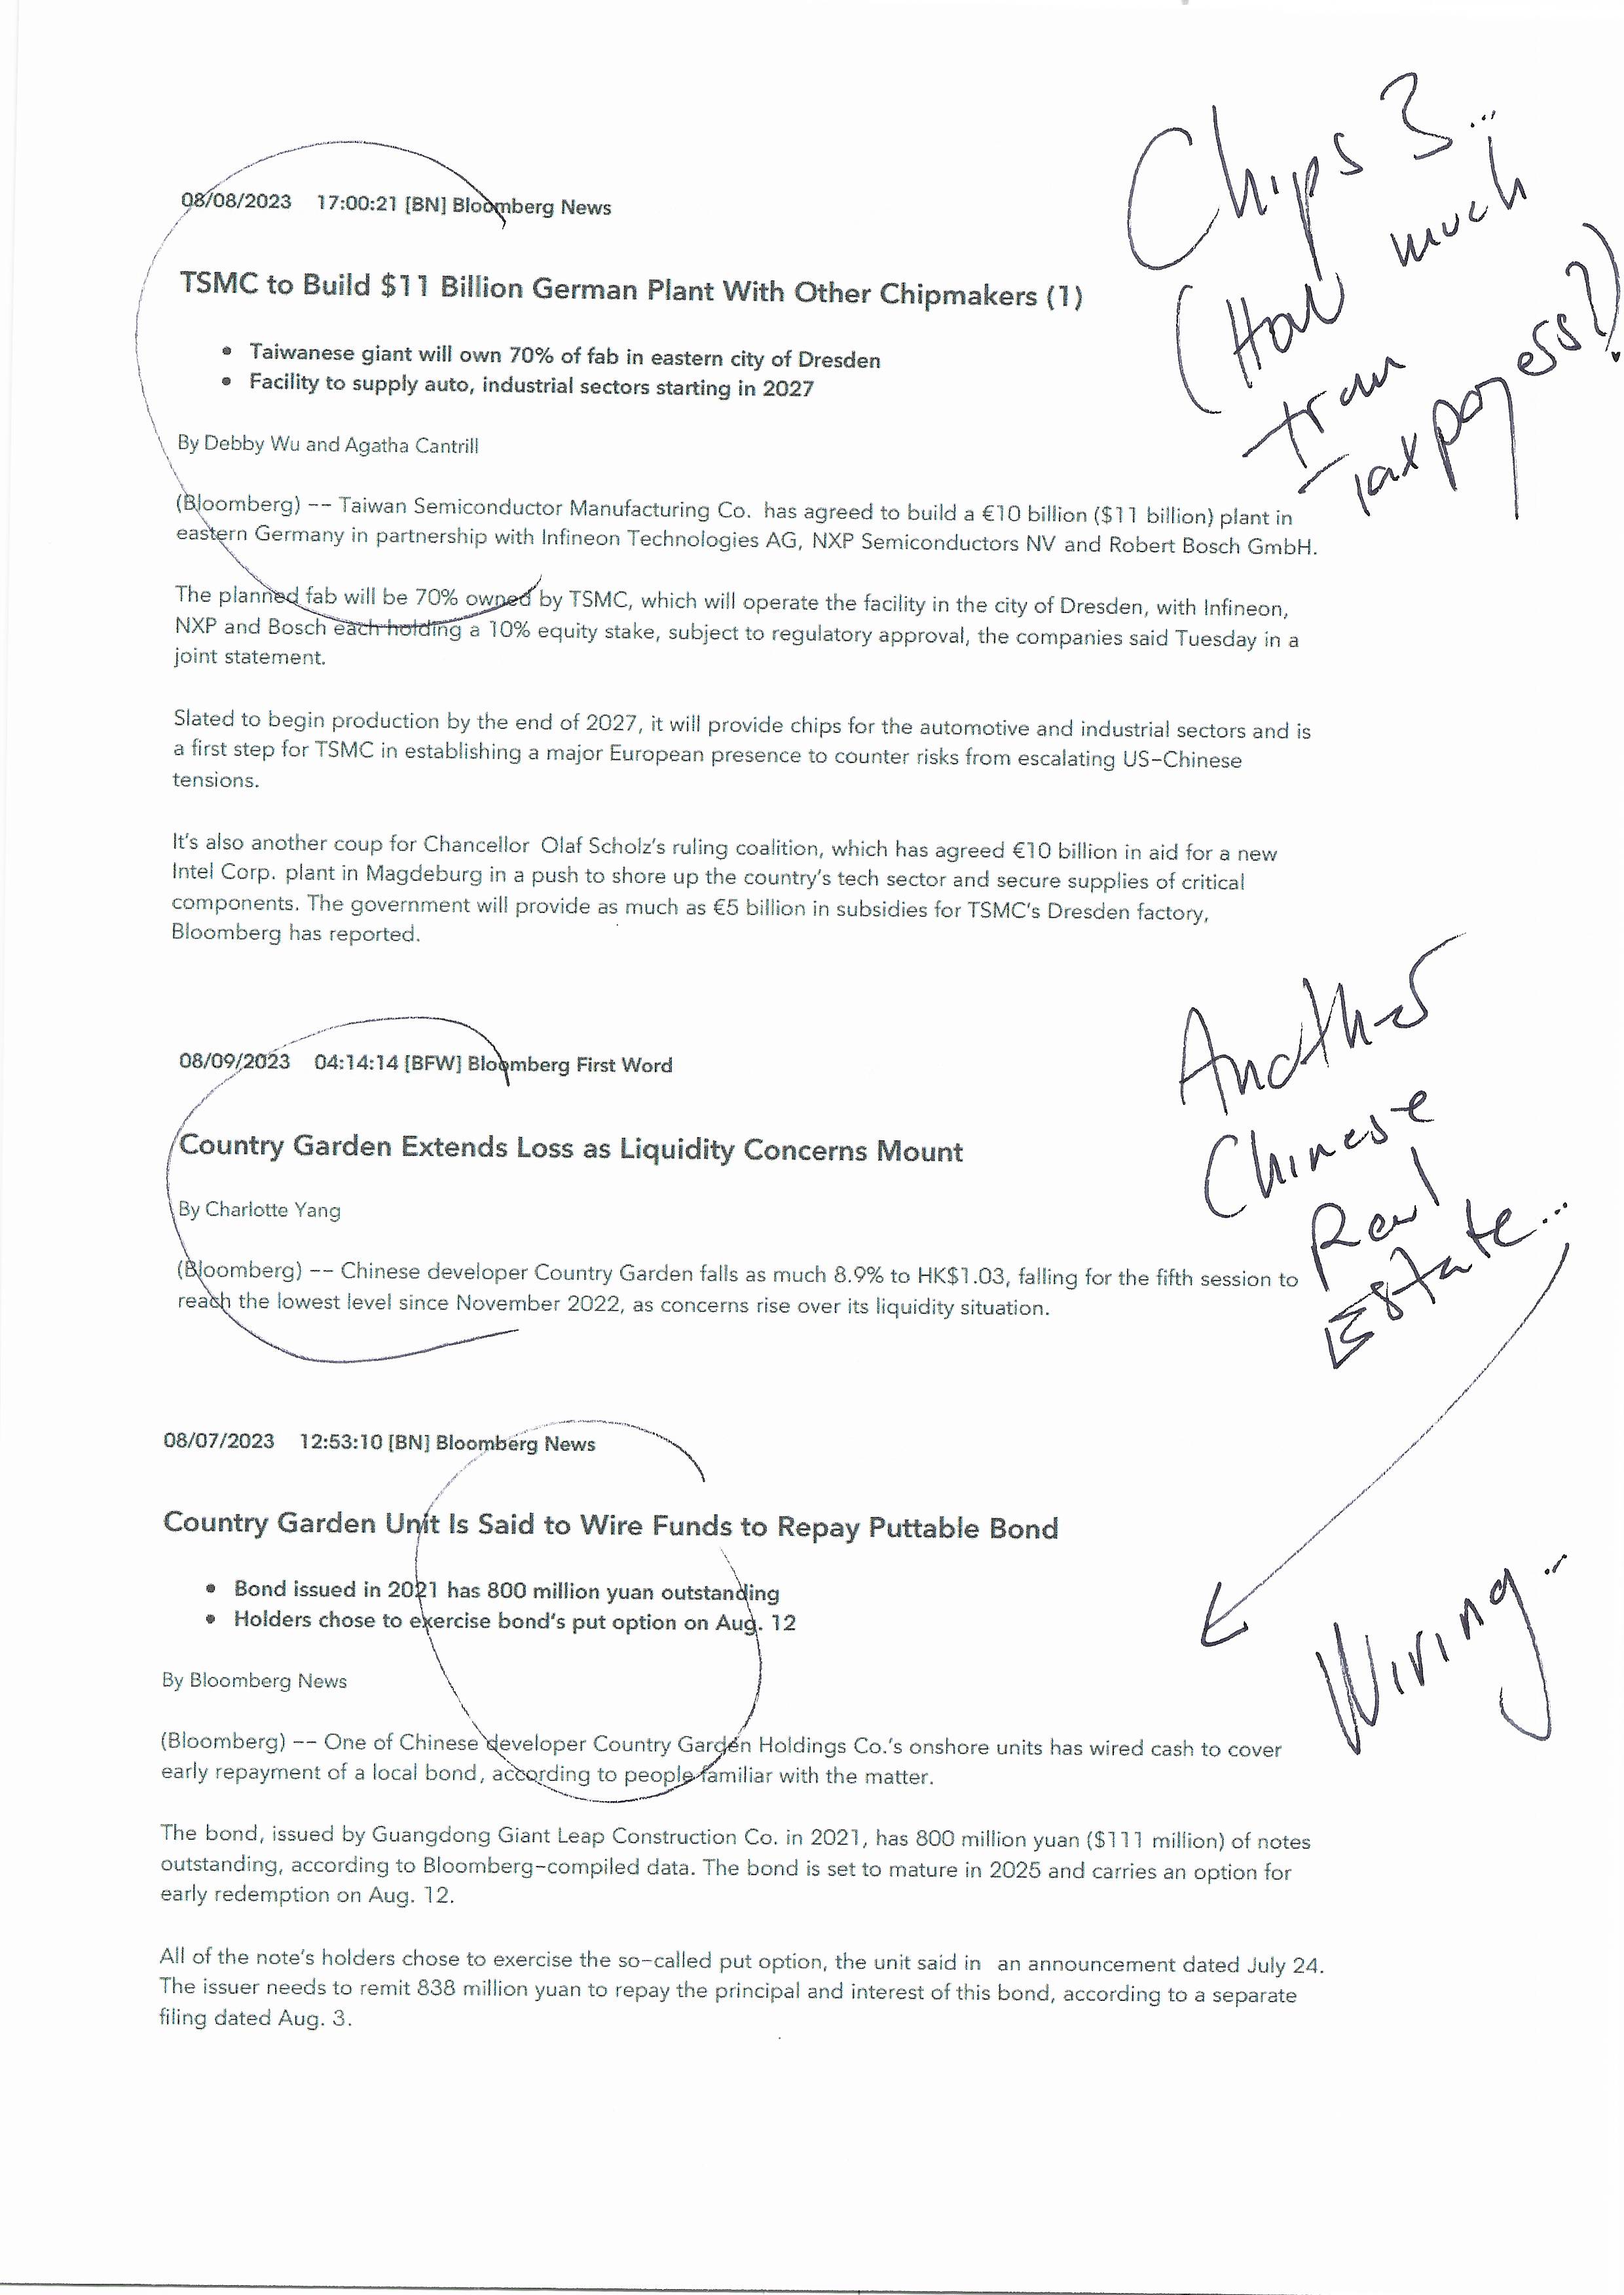 Chips 3...
(How much
from
Taxpayers?)
08/08/2023 17:00:21 [BN] Bloomberg News
TSMC to Build $11 Billion German Plant With Other Chipmakers (1)
• Taiwanese giant will own 70% of fab in eastern city of Dresden
• Facility to supply auto, industrial sectors starting in 2027
By Debby Wu and Agatha Cantrill
(Bloomberg) -- Taiwan Semiconductor Manufacturing Co. has agreed to build a €10 billion ($11 billion) plant in
eastern Germany in partnership with Infineon Technologies AG, NXP Semiconductors NV and Robert Bosch GmbH.
The planned fab will be 70% owned by TSMC, which will operate the facility in the city of Dresden, with Infineon,
NXP and Bosch each holding a 10% equity stake, subject to regulatory approval, the companies said Tuesday in a
joint statement.
Slated to begin production by the end of 2027, it will provide chips for the automotive and industrial sectors and is
a first step for TSMC in establishing a major European presence to counter risks from escalating US-Chinese
tensions.
It's also another coup for Chancellor Olaf Scholz's ruling coalition, which has agreed €10 billion in aid for a new
Intel Corp. plant in Magdeburg in a push to shore up the country's tech sector and secure supplies of critical
components. The government will provide as much as €5 billion in subsidies for TSMC's Dresden factory,
Bloomberg has reported.
Another
Chinese
Real
Estate...
08/09/2023 04:14:14 [BFW] Bloomberg First Word
Country Garden Extends Loss as Liquidity Concerns Mount
By Charlotte Yang
(Bloomberg) -- Chinese developer Country Garden falls as much 8.9% to HK$1.03, falling for the fifth session to
reach the lowest level since November 2022, as concerns rise over its liquidity situation.
08/07/2023 12:53:10 [BN] Bloomberg News
Country Garden Unit Is Said to Wire Funds to Repay Puttable Bond
• Bond issued in 2021 has 800 million yuan outstanding
• Holders chose to exercise bond's put option on Aug. 12
Wiring..
By Bloomberg News
(Bloomberg) -- One of Chinese developer Country Garden Holdings Co.'s onshore units has wired cash to cover
early repayment of a local bond, according to people familiar with the matter.
The bond, issued by Guangdong Giant Leap Construction Co. in 2021, has 800 million yuan ($111 million) of notes
outstanding, according to Bloomberg-compiled data. The bond is set to mature in 2025 and carries an option for
early redemption on Aug. 12.
All of the note's holders chose to exercise the so-called put option, the unit said in an announcement dated July 24.
The issuer needs to remit 838 million yuan to repay the principal and interest of this bond, according to a separate
filing dated Aug. 3.